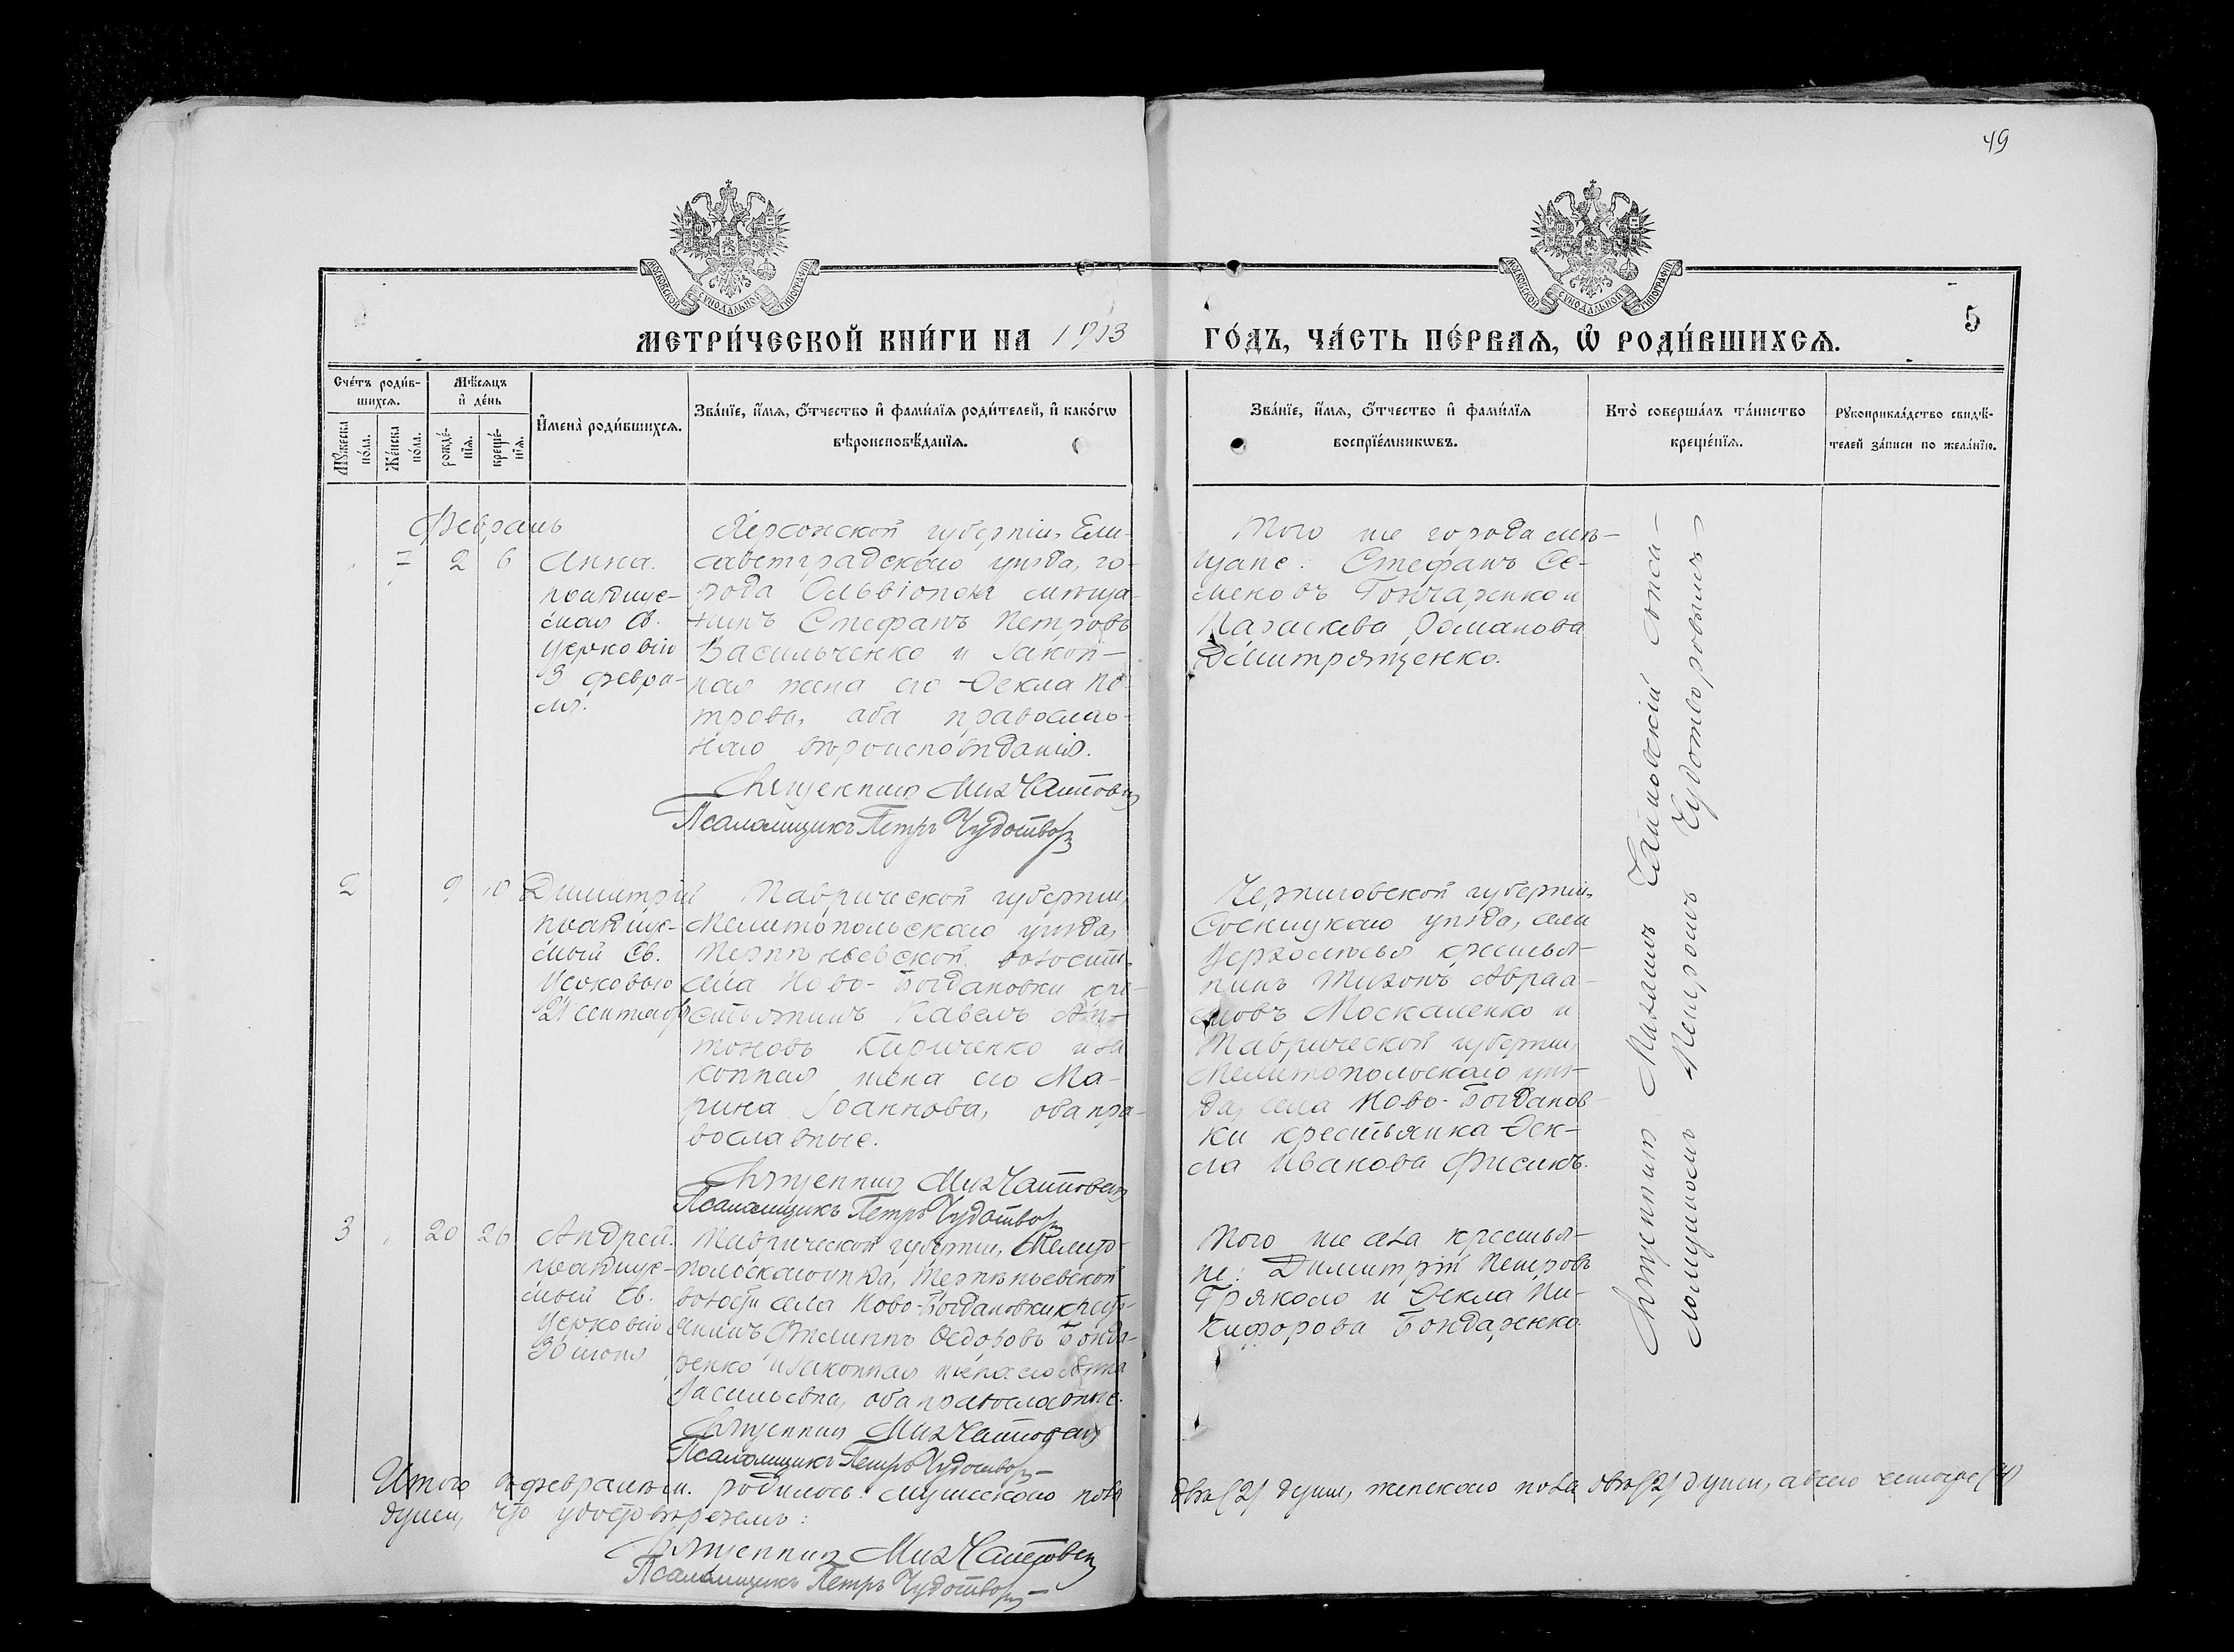 49
МОСКОВСКОЙ СУНОДАЛЬНОЙ ТИПОГРАФІИ
МОСКОВСКОЙ СУНОДАЛЬНОЙ ТИПОГРАФІИ
МЕТРИ́ЧЕСКОЙ КНИ́ГИ НА 1913
ГО́ДЪ, ЧА́СТЬ ПЕ́РВАѦ, Ѡ҆ РОДИ́ВШИХСѦ.
5
Сче́тъ роди́в-
шихсѧ.
Мꙋ́жеска по́ла.
Же́нска по́ла.
Мѣ́сѧцъ
и҆ де́нь
рожде́-
нїѧ.
креще́-
нїѧ.
И҆мена̀ роди́вшихсѧ.
Зва́нїе, и҆́мѧ, ѻ҆́тчество и҆ фами́лїѧ роди́телей, и҆ како́гѡ
вѣроисповѣ́данїѧ.
Зва́нїе, и҆́мѧ, ѻ҆́тчество и҆ фами́лїѧ
воспрїе́мникѡвъ.
Кто̀ соверша́лъ та́инство
креще́нїѧ.
Рꙋкоприкла́дство свидѣ́-
телей за́писи по жела́нїю.
Февраль
2 6
Анна.
празднуе-
мая Св.
Церковію
3 февра-
ля.
Херсонской губерніи, Ели-
саветградскаго уѣзда, го-
рода Ольвіополя мѣща-
нинъ Стефанъ Петровъ
Васильченко и закон-
ная жена его Ѳекла Пе-
трова, оба православ-
наго вѣроисповѣданія.
Священникъ Мих Чайновскій
Псаломщикъ Петръ Чудотвор
Того же города мѣ-
щане: Стефанъ Се-
меновъ Гончаренко и
Параскева Романова
Димитрященко.
2 9 10
Димитрій
празднуе-
мый Св.
Церковью
21 сентября
Таврической губерніи,
Мелитопольскаго уѣзда,
Терпѣньевской волости,
села Ново-Богдановки кре-
стьянинъ Павелъ Ан-
тоновъ Кириченко и за
конная жена его Ма-
рина Іоаннова, оба пра-
вославные.
Священникъ Мих Чайновскій
Псаломщикъ Петръ Чудотвор
Черниговской губерніи,
Сосницкаго уѣзда, села
крестья-
нинъ Тихонъ Авраа-
мовъ Москаленко и
Таврической губерніи,
Мелитопольскаго уѣз-
да, села Ново-Богданов-
ки крестьянка Ѳек-
ла Иванова Фисинъ.
3 20 26
Андрей.
празднуе-
мый Св.
Церковію
30 іюня
Таврической губерніи, Мелито-
польскаго уѣзда, Терпѣньевской
волости села Ново-Богдановки крест-
янинъ Филиппъ Ѳедоровъ Бонда-
ренко и законная жена его
Васильевна, оба православные.
Священникъ Мих Чайновскій
Псаломщикъ Петръ Чудотвор
Того же села крестья-
не: Димитрій Петровъ
и Ѳекла Ни-
кифорова Бондаренко.
Священникъ Михаилъ Чайновскій съ пса-
ломщикомъ Петромъ Чудотворовымъ
Итого въ февралѣ м. родилось: мужескаго пола два (2) души, женскаго пола двѣ (2) души, а всего четыре (4)
души, что удостовѣряемъ:
Священникъ Мих Чайновскій
Псаломщикъ Петръ Чудотвор